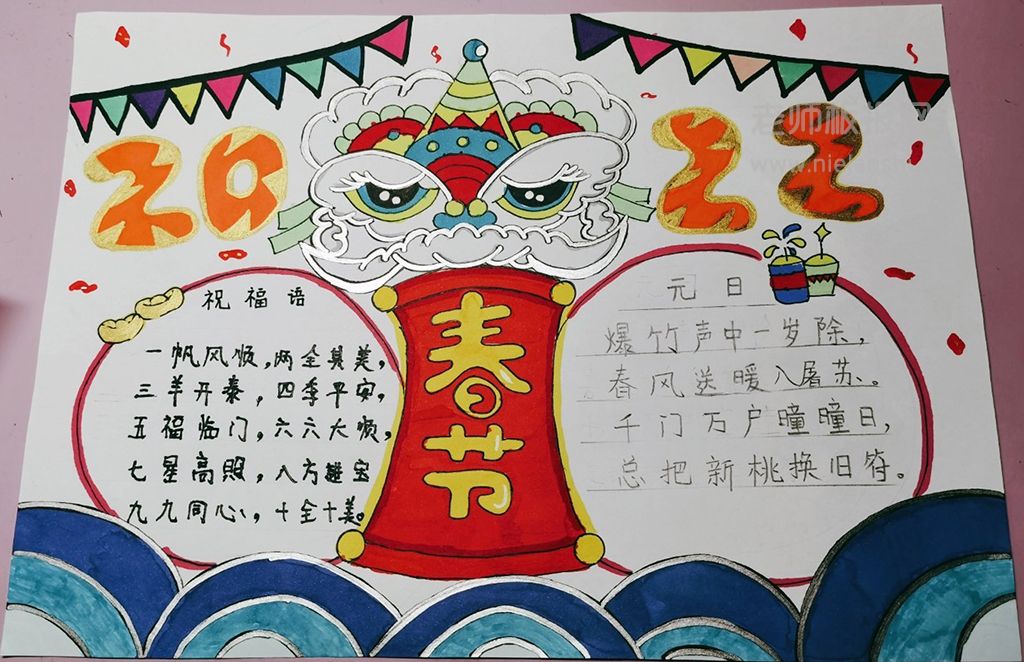 2022
春节
祝福语
一帆风顺,两全其美,
三羊开泰,四季平安,
五福临门,六六大顺,
七星高照,八方進宝
九九同心,十全十美。
元日
爆竹声中一岁除,
春风送暖入屠苏。
千门万户曈曈日,
总把新桃换旧符。